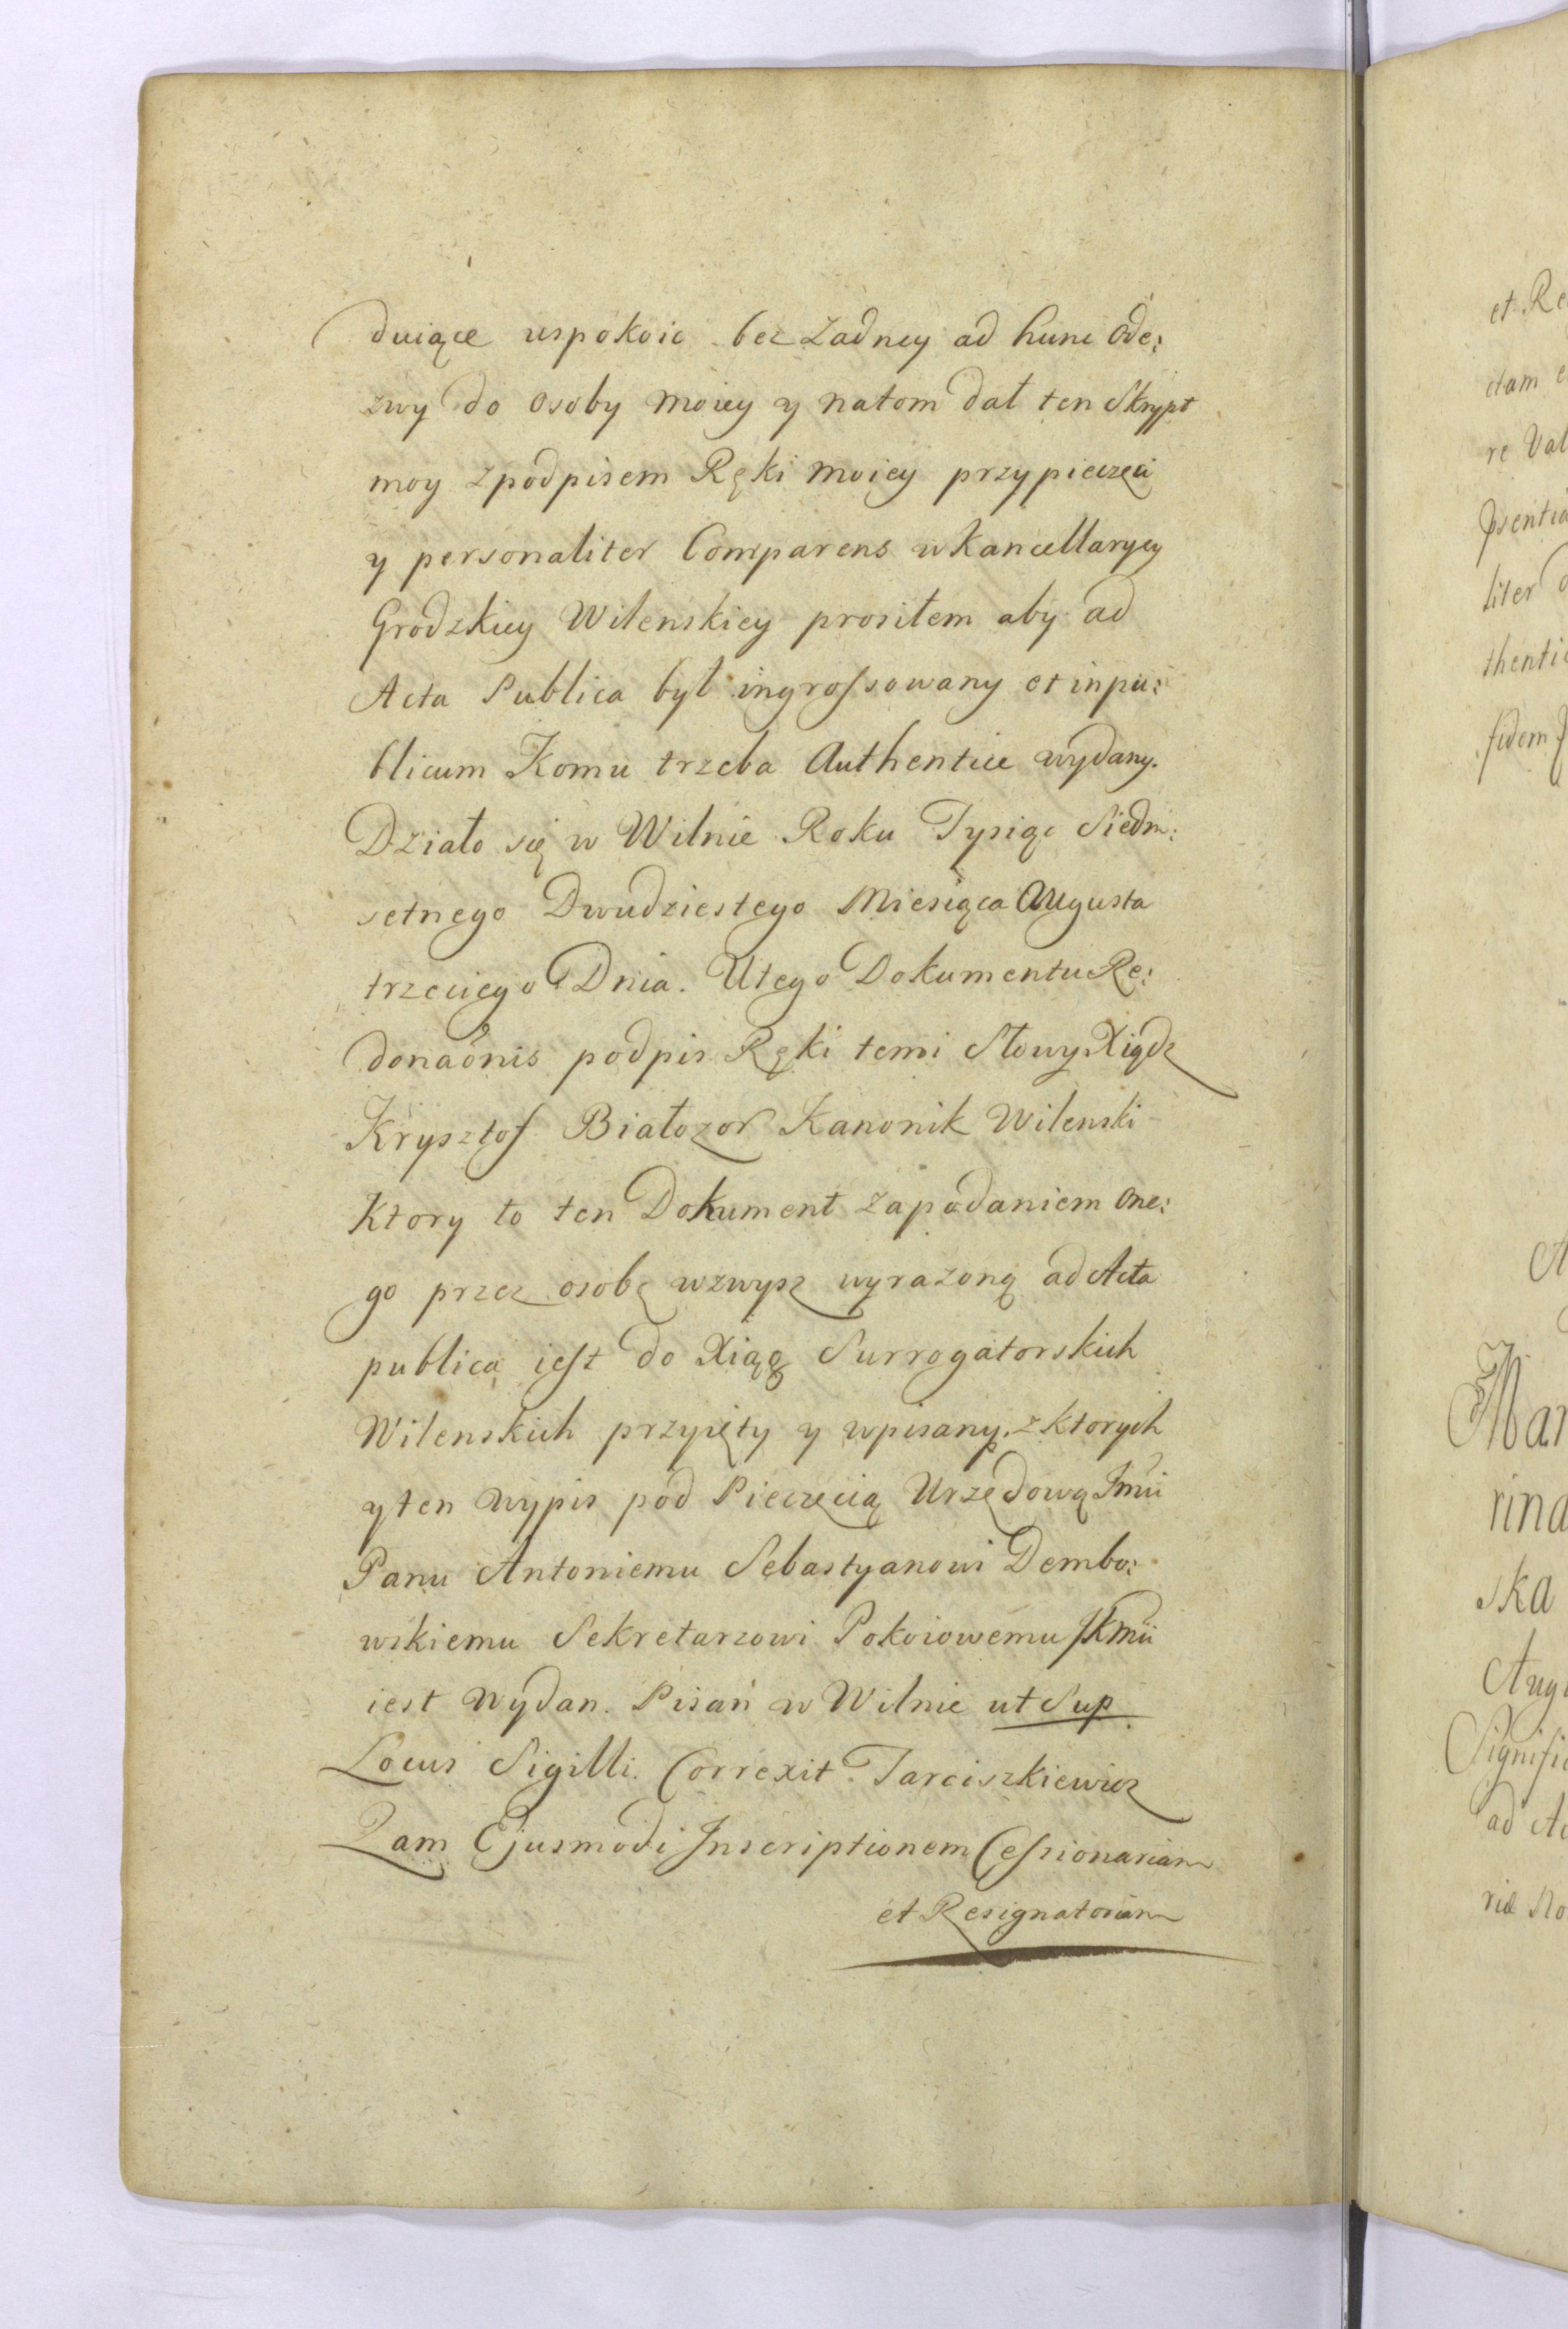 duiące uspokoic bez Zadney ad hunc Ode:
zwy do Osoby moiey y natom dał ten Skrypt
moy zpodpisem Ręki moiey przypieczęci
y personaliter Comparens w Kancellaryey
Grodzkiey Wilenskiey prosiłem aby ad
Acta Publica był ingrossowany et inpu:
blicum Komu trzeba Authentice wydany.
Działo się w Wilnie Roku Tysiąc Siedm:
setnego Dwudziestego Miesiąca Augusta
trzeciego Dnia. Utego Dokumentu Re:
donaõnis podpis Ręki temi Słowy Xiądz
Krysztof Białozor Kanonik Wilenski
Ktory to ten Dokument zapodaniem One:
go przez osobę wzwysz wyrazoną ad Acta
publica iest do Xiąg Surrogatorskich
Wilenskich przyięty y wpisany. z ktorych
y ten wypis pod Pieczęcią Urzędową Jmũ
Panu Antoniemu Sebastyanowi Dembo:
wskiemu Sekretarzowi Pokoiowemu JKmũ
iest Wydan. Pisań w Wilnie ut Sup
Locus Sigilli. Correxit Tarciszkiewicz
Qam Ejusmodi Inscriptionem Cessionariam
et Resignatoriam
et Re
ctam
re Val
liter
thentic
fidem
Mar
rina
ska
Augu
Signific
ad Ac
riæ No